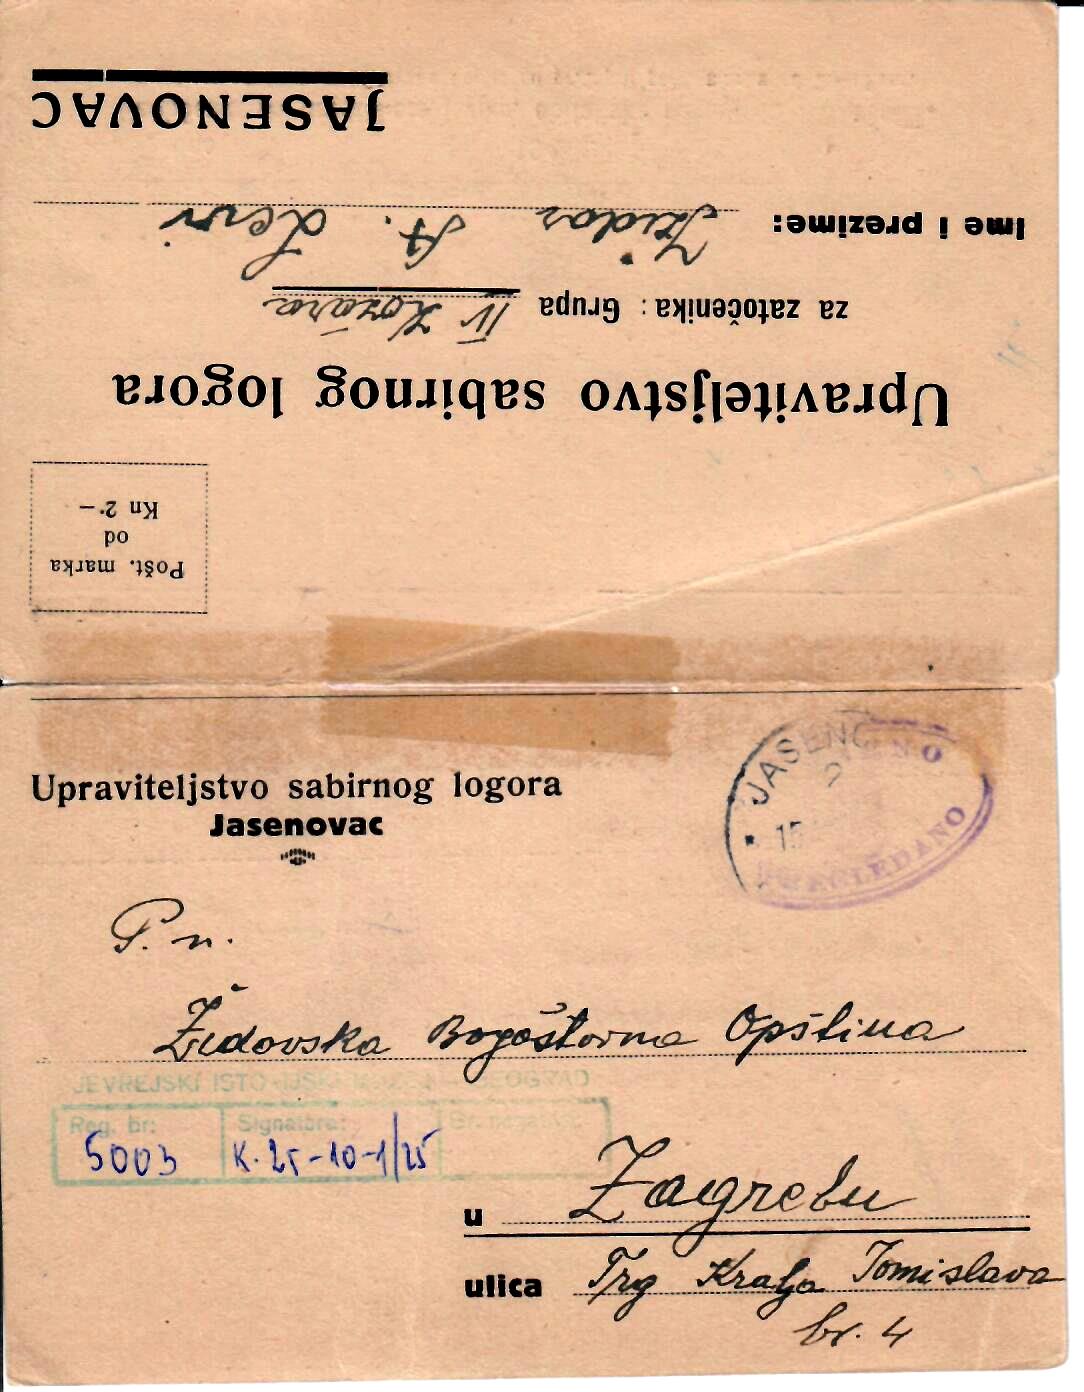 Pošt. marka
od
Kn 2·–
Upraviteljstvo sabirnog logora
za zatočenika: Grupa IV Kozara
Ime i prezime: Izidor A. Levi
JASENOVAC
Upraviteljstvo sabirnog logora
Jasenovac
15
PREGLEDANO
P. n.
Židovska Bogoštovna Opština
JEVREJSKI ISTORIJSKI MUZEJ – BEOGRAD
Reg. br: Signatura: Br. negativa:
5003 K. 25-10-1/25
u Zagrebu
ulica Trg Kralja Tomislava
br. 4